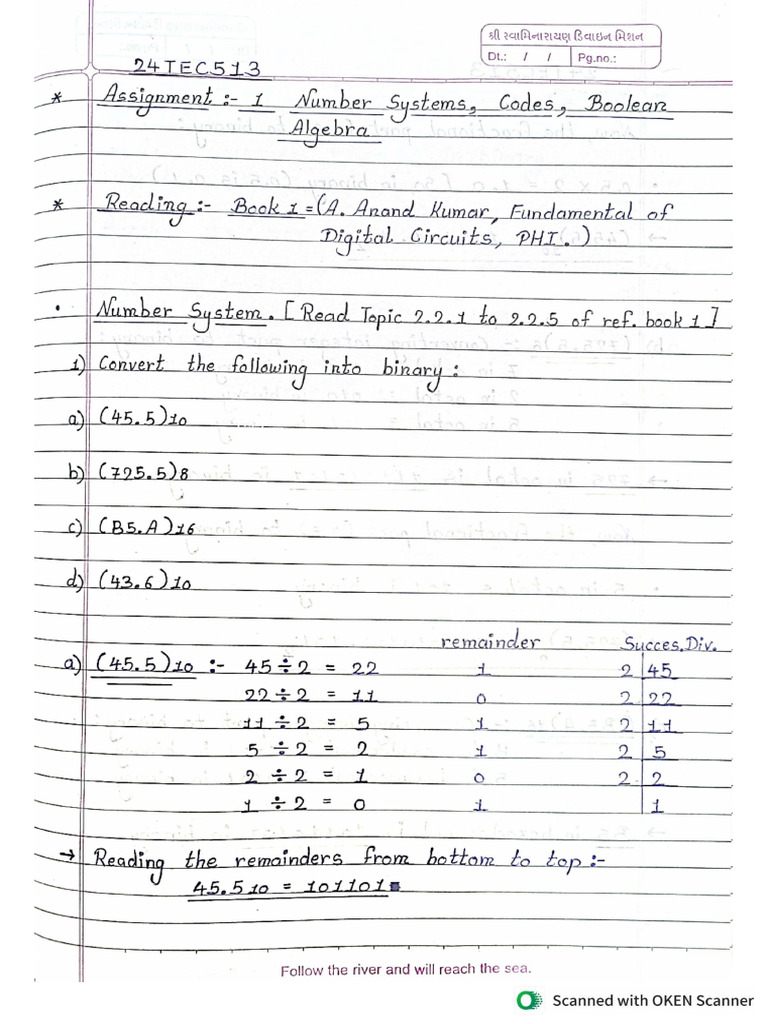 શ્રી સ્વામિનારાયણ ડિવાઇન મિશન
Dt.: / / Pg.no.:
24TEC513
* Assignment :- 1 Number Systems, Codes, Boolean
Algebra
* Reading :- Book 1 = (A. Anand Kumar, Fundamental of
Digital Circuits, PHI.)
• Number System. [Read Topic 2.2.1 to 2.2.5 of ref. book 1]
1) Convert the following into binary :
a) (45.5)10
b) (725.5)8
c) (B5.A)16
d) (43.6)10
remainder Succes. Div.
a) (45.5)10 :- 45 ÷ 2 = 22 1 2 45
22 ÷ 2 = 11 0 2 22
11 ÷ 2 = 5 1 2 11
5 ÷ 2 = 2 1 2 5
2 ÷ 2 = 1 0 2 2
1 ÷ 2 = 0 1 1
→ Reading the remainders from bottom to top :-
45.510 = 101101
Follow the river and will reach the sea.
Scanned with OKEN Scanner